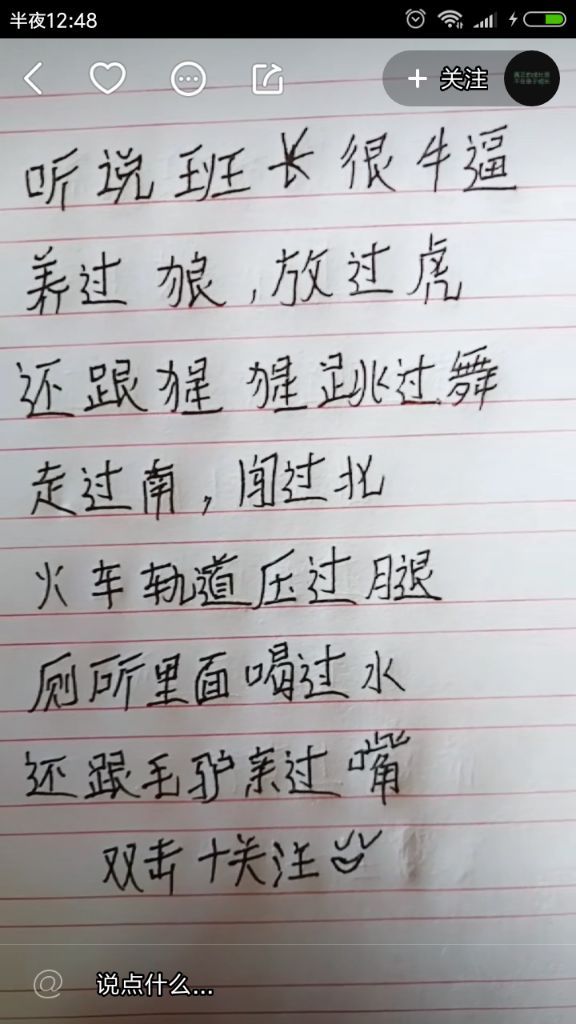 半夜12:48
+ 关注
听说班长很牛逼
养过狼,放过虎
还跟猩猩跳过舞
走过南,闯过北
火车轨道压过腿
厕所里面喝过水
还跟毛驴亲过嘴
双击+关注
@ 说点什么...